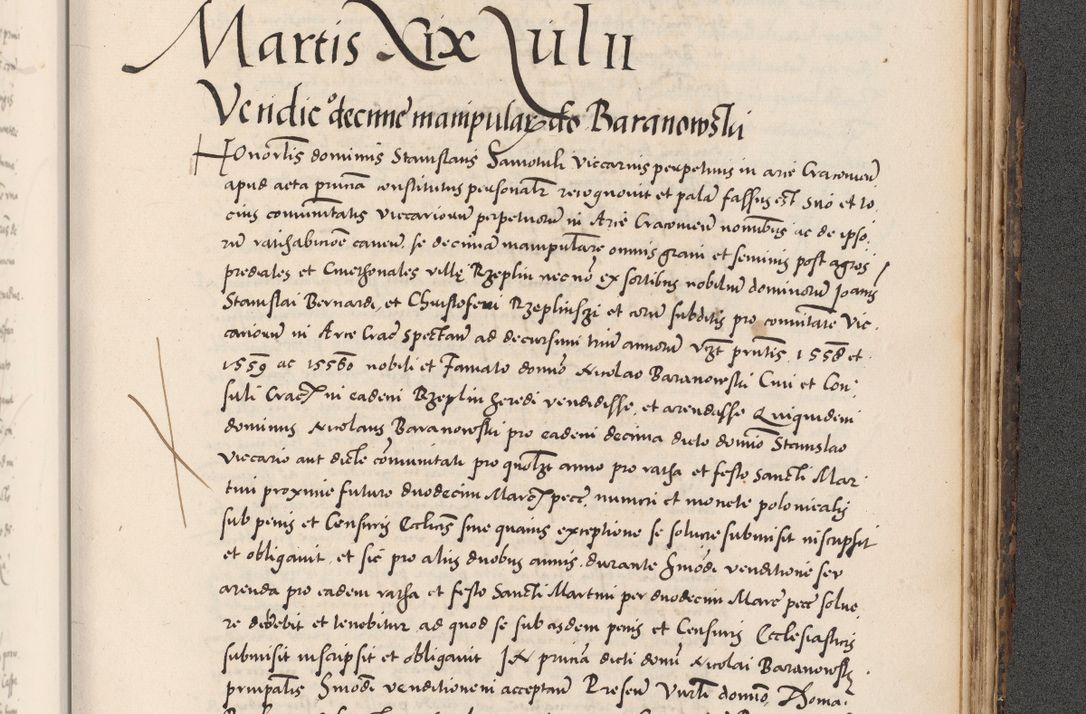 Martis xix Julii
Vendic decime manipular do Baranowski
Honorlis dominus Stanislaus Samotuli Viccarius perpetuus in arce Cracovien
apud acta prncia constitutus personalr recognovit et pala fassus est suo et to
cius comunitatis viccariorum perpetuorum in Arce Cracovien nominibus ac de ipso
rum ratihabicoe caven. se decimam manipularem omnis grani et seminis post agros
prediales et Cmethonales ville Rzeplin nec no ex sortibus nobilium dominorum Joanis
Stanislai Bernardi, et Christoferi Rzeplinski et eorum subditis pro comitate Vic
cariorum in Arce Crac spectan ad decursum trium annorum vzt prntis 1558 et
1559 ac 15560 nobili et Famato domno Nicolao Baranowski Civi et Con
suli Crac in eadem Rzeplin heredi vendidisse, et arendasse Quiquidem
dominus Nicolaus Baranowski pro eadem decima dicto domio Stanislao
viccario aut dicte comunitati pro quolzt anno pro ratha et festo Sancti Mar
tini proxime futuro duodecim Marc pecc numeri et monete polonicalis
sub penis et Censuris Ecclicis sine quavis exceptione se solvere submisit inscripsit
et obligavit, et sic pro aliis duobus annis, durante hmodi venditione seu
arenda pro eadem ratha et festo Sancti Martini per duodecim Marc pecc solve
re debebit et tenebitur ad quod se sub eisdem penis et Censuris Ecclesiasticis
submisit inscripsit et obligavit In prncia dicti domi Nicolai Baranowski
principalis hmodi venditionem acceptan Presen Vnrli domno Thoma